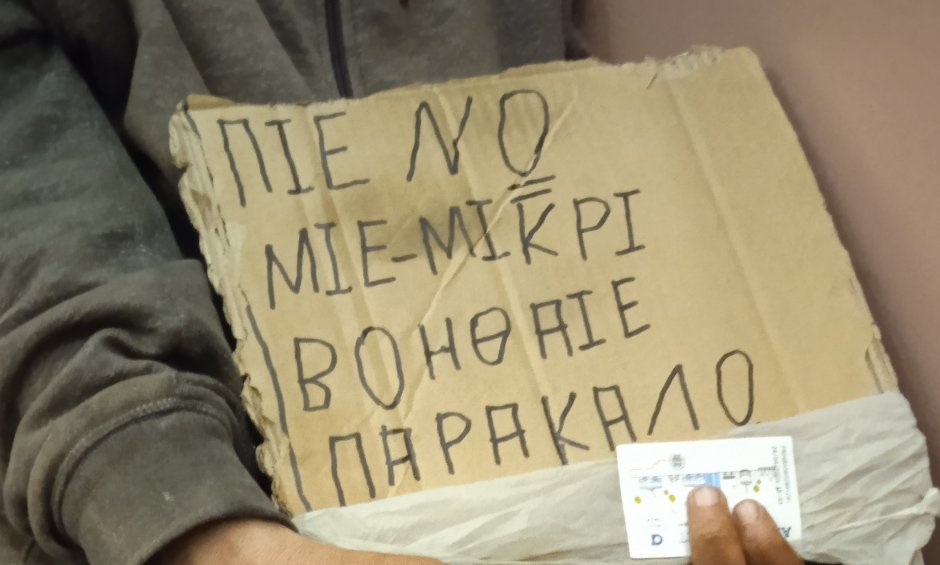 ΠΙΕ ΝΟ
ΜΙΕ-ΜΙΚΡΙ
ΒΟΗΘΑΙΕ
ΠΑΡΑΚΑΛΟ